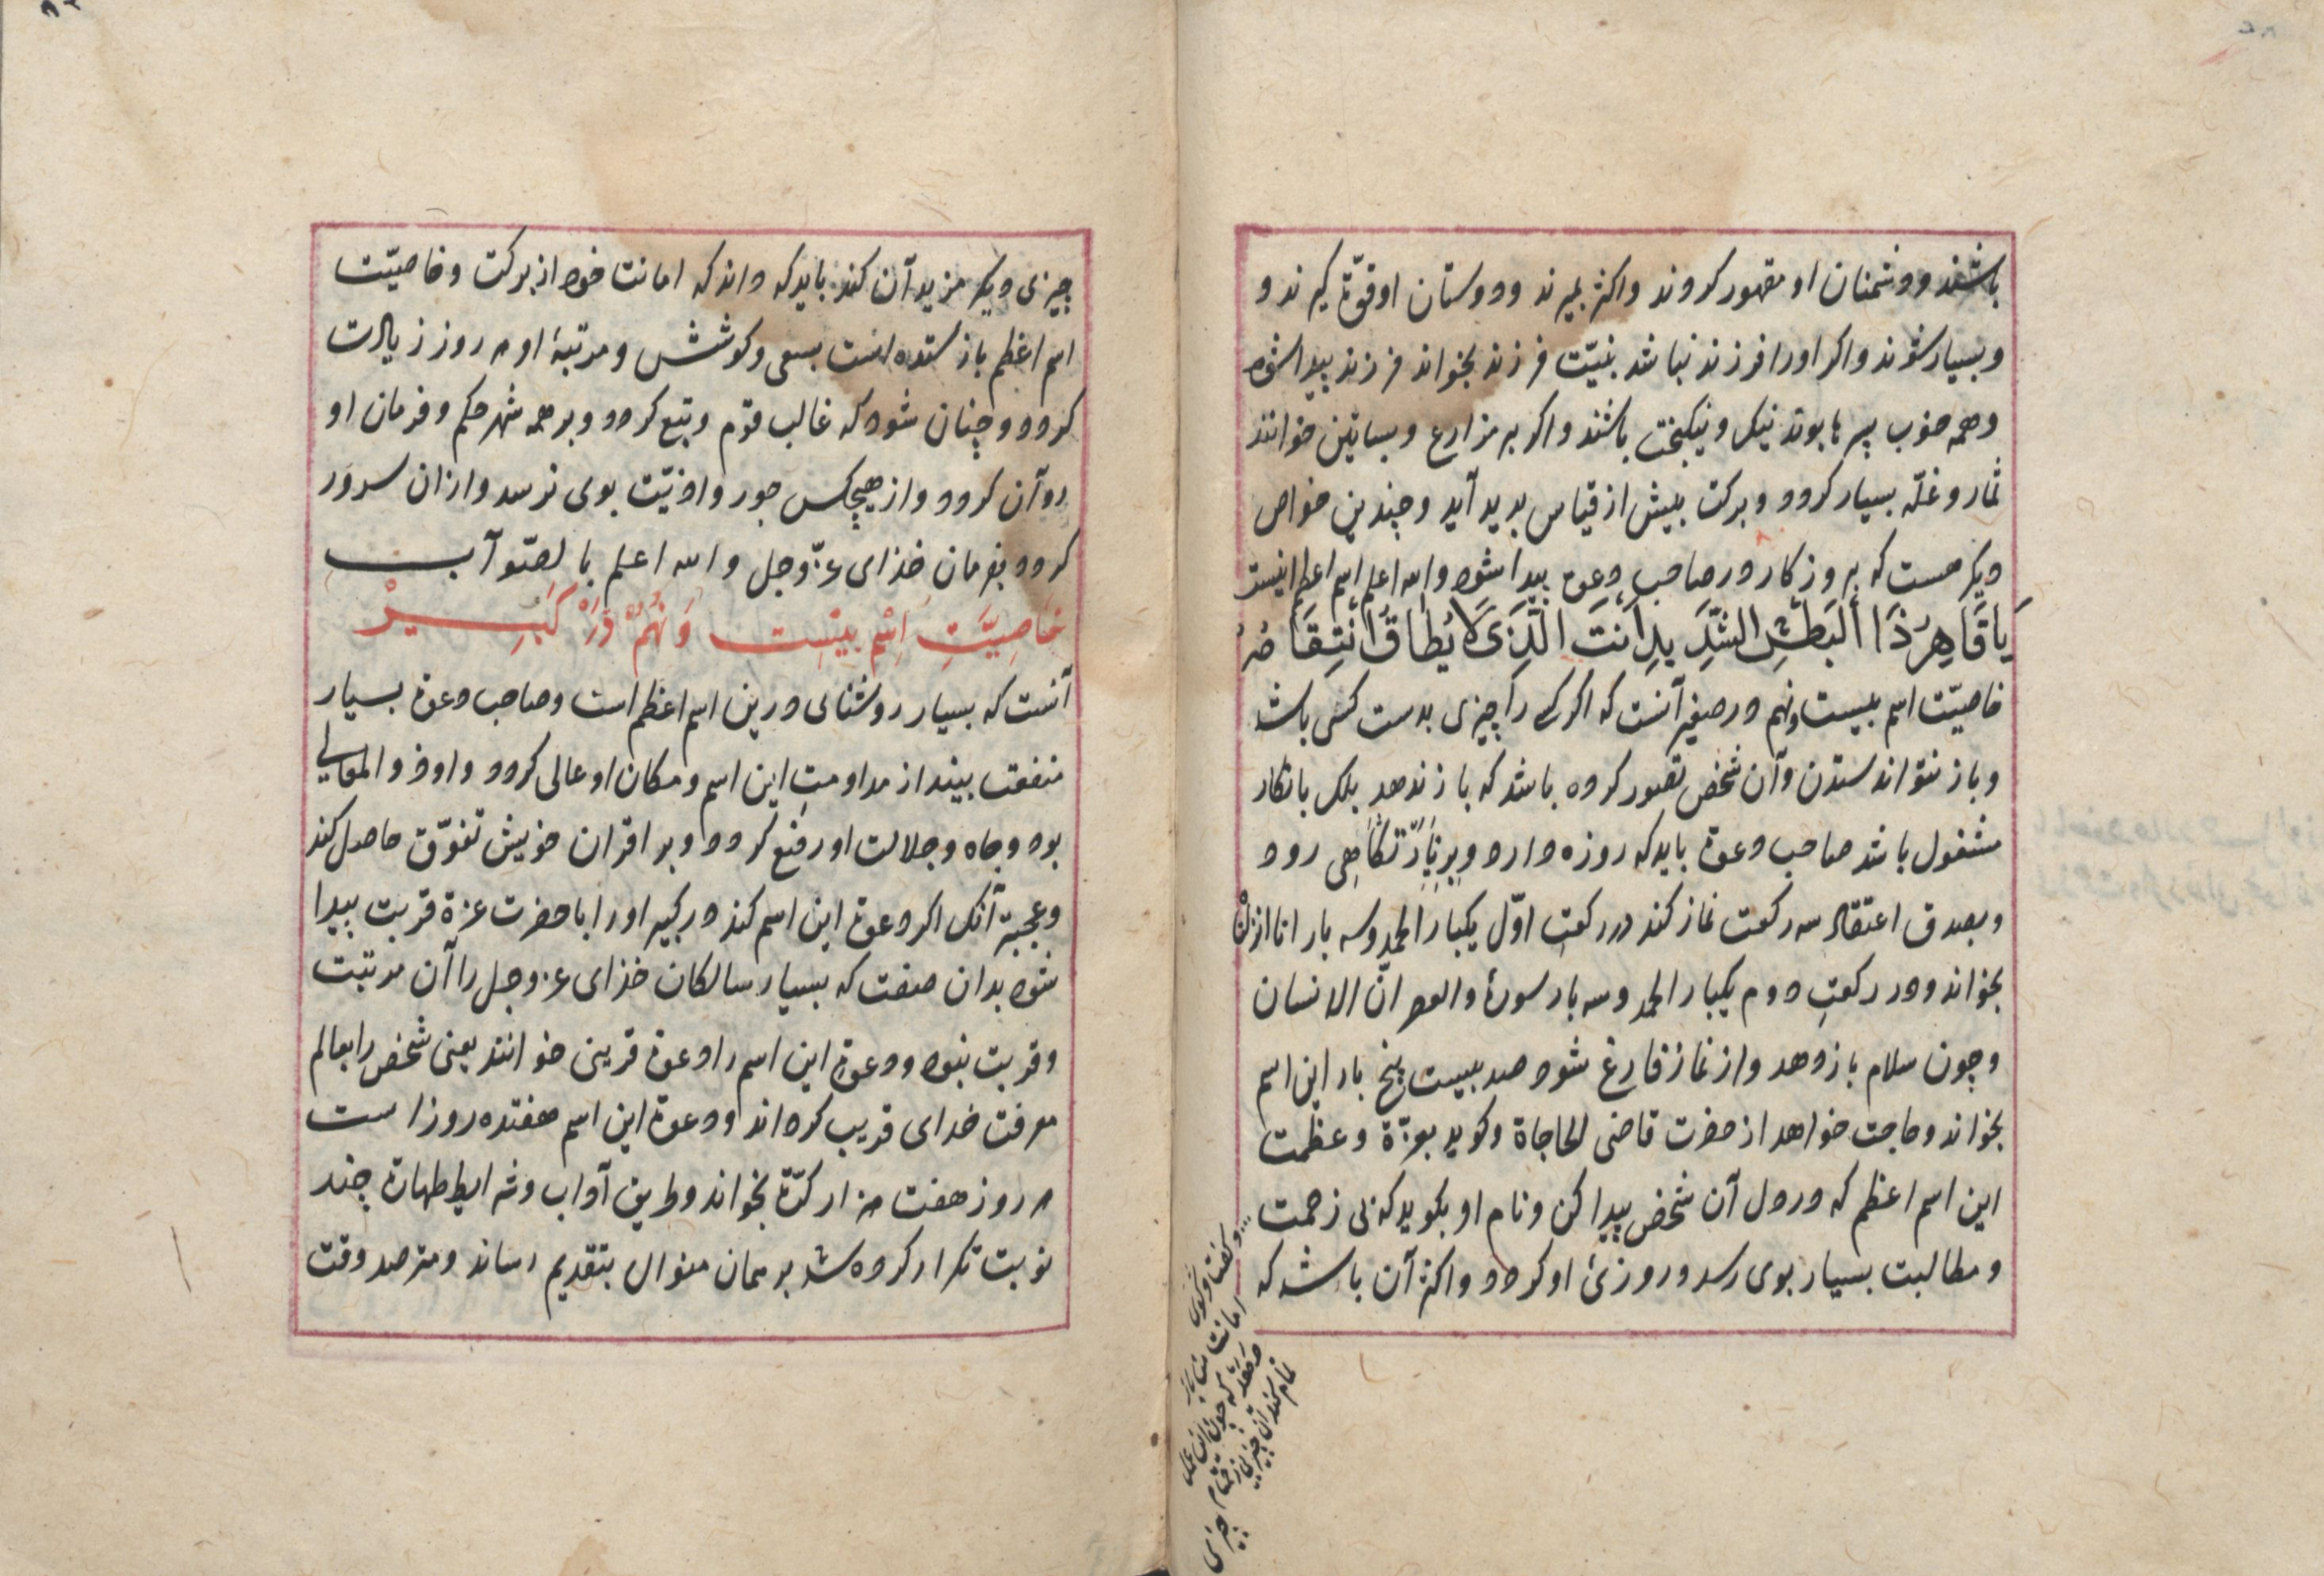 باشند و دشمنان او مقهور کردند و اکثر بمیرند و دوستان او قوّة کیرند و
و بسیار شوند و اکر او را فرزند نباشد بنیّت فرزند بخواند فرزند پیدا شود
و همه خوب سیرتها بوند نیک و نیکبخت باشند و اکر بر مزارع و بساتین خوانند
ثمار و غلّه بسیار کردد و برکت بیش از قیاس بدید آید و چندین خواص
دیکر هست که بروزکار در صاحب دعوة پیدا شود والله اعلم اسم اعظم اینست
یَا قَاهِرُ ذَا الْبَطْشِ الشَّدِیدِ اَنْتَ الَّذِی لَا یُطَاقُ اَنْتِقَامُهُ
خاصیّت اسم بیست و نهم در صغیر آنست که اکر کسی را چیزی بدست کسی باشد
و باز نتواند ستدن و آن شخص تصور کرده باشد که باز ندهد بلک بانکار
مشغول باشد صاحب دعوة باید که روزه دارد و
و بصدق اعتقاد سه رکعت نماز کند در رکعتِ اوّل یکبار الحمد و سه بار انا انزلنا
بخواند و در رکعتِ دوم یکبار الحمد و سه بار سورۀ والعصر انّ الانسان
و چون سلام باز دهد و از نماز فارغ شود صد بیست پنج بار این اسم
بخواند و حاجت خواهد از حضرت قاضی الحاجاة و کوید بعزّة و عظمت
این اسم اعظم که در دل آن شخص پیدا کن و نام او بکوید که بی زحمت
و مطالبت بسیار بوی رسد و روزئ او کردد و اکثر آن باشد که
چیزی دیکر مزید آن کند باید که داند که امانت خود از برکت و خاصیّت
اسم اعظم باز ستده است بسعی و کوشش و مرتبۀ او هر روز زیادت
کردد و چنان شود که غالب قوم و تبع کردد و بر همه شهر حکم و فرمان او
روآن کردد و از هیچکس جور و اذیّت بوی نرسد و از ان سرور
کردد بفرمان خذای عزّ و جل والله اعلم بالصّوآب
خَاصِیَّتِ اِسْم بیست وَ نُهُمْ دَرْ کَبِیرْ
آنست که بسیار روشنای درین اسم اعظم است و صاحب دعوة بسیار
منفعت بیند از مداومتِ این اسم و مکان او عالی کردد و اوذ والمعالی
بود و جاه و جلالت او رفیع کردد و بر اقران خویش تفوّق حاصل کند
و عجبتر آنک اکر دعوة این اسم کند در کبیر او را با حضرت عزة قربت پیدا
شود بدان صفت که بسیار سالکان خذای عز و جل را آن مرتبت
و قربت نبود و دعوة این اسم را دعوة قربن خوانند یعنی شخص را بعالم
معرفت خدای قریب کرداند و دعوة این اسم هفتده روز است
هر روز هفت هزار کرّة بخواند و طریق آداب و شرایط طهارة چند
نوبت تکرار کرده شد بر همان منوال بتقدیم رساند و مترصد وقت